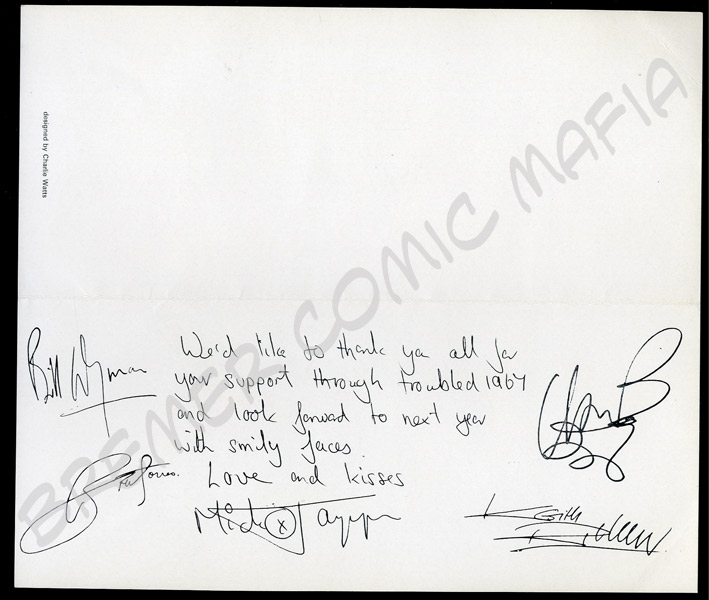 designed by Charlie Watts
BREMER COMIC MAFIA
Bill Wyman
We'd like to thank you all for
your support through troubled 1967
and look forward to next year
with smily faces.
Love and kisses
Mick Jagger
Keith